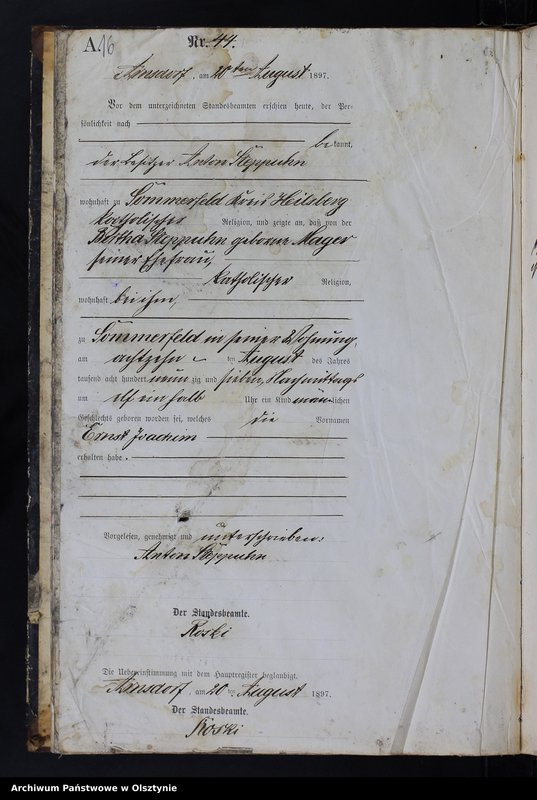 A.
16
Nr. 44.
Arnsdorf, am 20ten August 1897.
Vor dem unterzeichneten Standesbeamten erschien heute, der Per-
sönlichkeit nach
bekannt,
der Besitzer Anton Steppuhn
wohnhaft zu Sommerfeld Kreis Heilsberg
katholischer Religion, und zeigte an, daß von der
Bertha Steppuhn geborne Mager
seiner Ehefrau,
katholischer Religion,
wohnhaft bei ihm,
zu Sommerfeld in seiner Wohnung,
am achtzehn ten August des Jahres
tausend acht hundert neunzig und sieben, Nachmittags
um elf ein halb Uhr ein Kind männlichen
Geschlechts geboren worden sei, welches die Vornamen
Ernst Joachim
erhalten habe.
Vorgelesen, genehmigt und unterschrieben:
Anton Steppuhn
Der Standesbeamte.
Roski
Die Uebereinstimmung mit dem Hauptregister beglaubigt.
Arnsdorf, am 20 ten August 1897.
Der Standesbeamte.
Roski
Archiwum Państwowe w Olsztynie